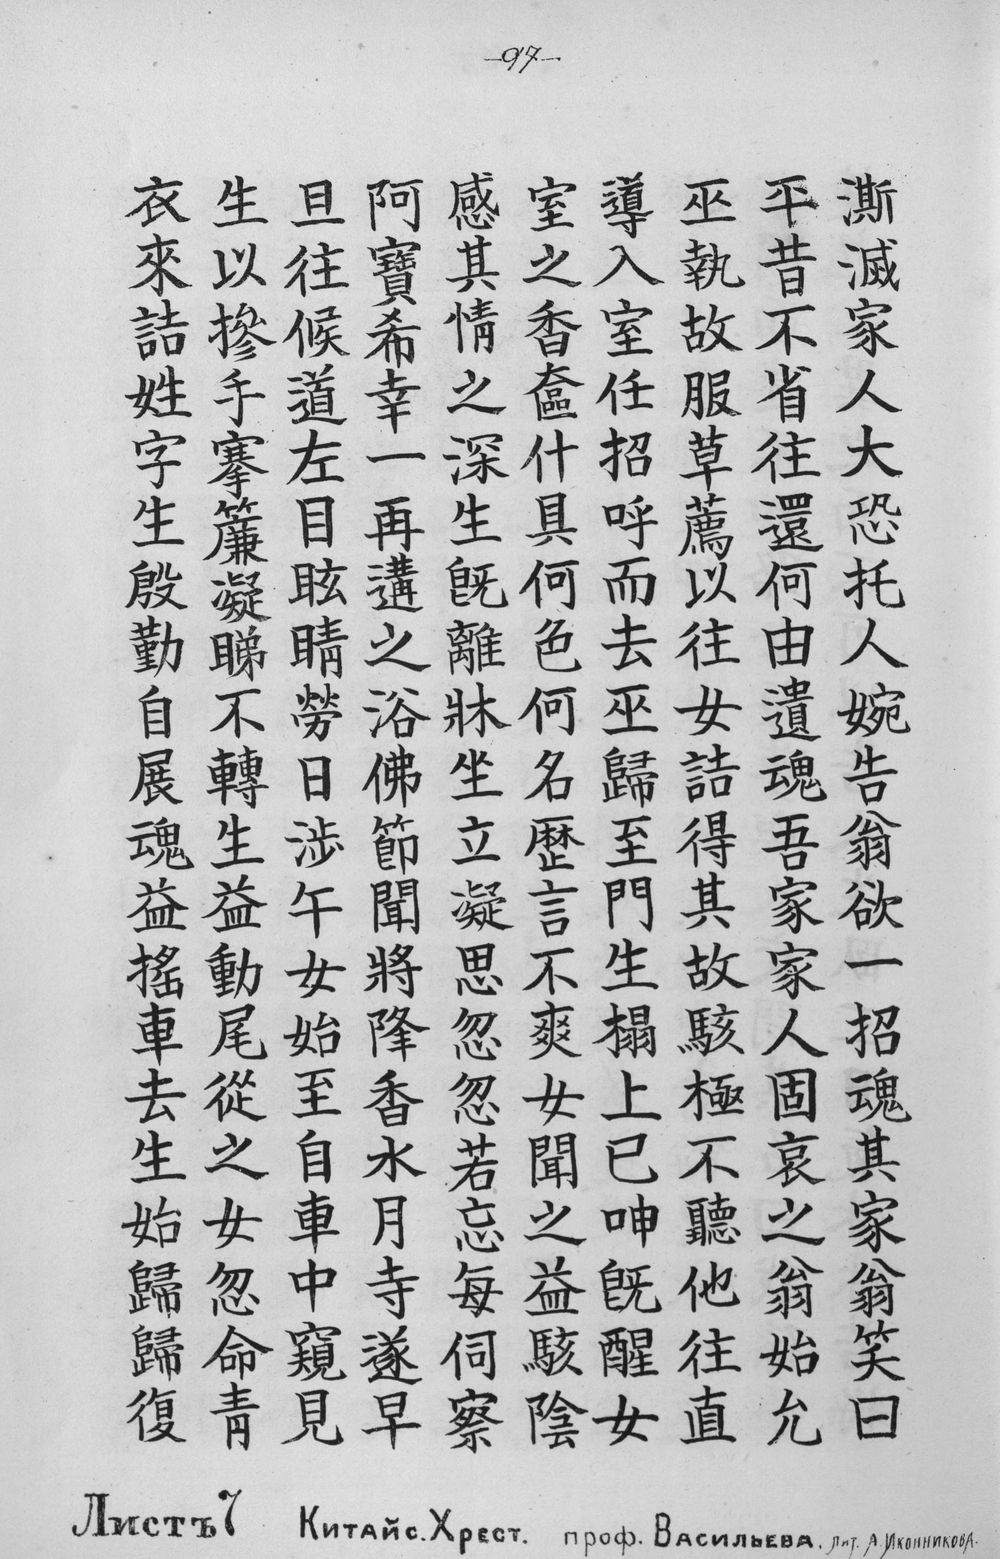 —97—
澌滅家人大恐托人婉告翁欲一招魂其家翁笑曰
平昔不省往還何由遺魂吾家家人固哀之翁始允
巫執故服草薦以往女詰得其故駭極不聽他往直
導入室任招呼而去巫歸至門生榻上已呻旣醒女
室之香奩什具何色何名歷言不爽女聞之益駭陰
感其情之深生旣離牀坐立凝思忽忽若忘每伺察
阿寶希幸一再遘之浴佛節聞將降香水月寺遂早
旦往候道左目眩睛勞日涉午女始至自車中窺見
生以摻手搴簾凝睇不轉生益動尾從之女忽命青
衣來詰姓字生殷勤自展魂益搖車去生始歸歸復
Листъ 7 Китайс. Хрест. проф. Васильева. лит. А. Иконникова.